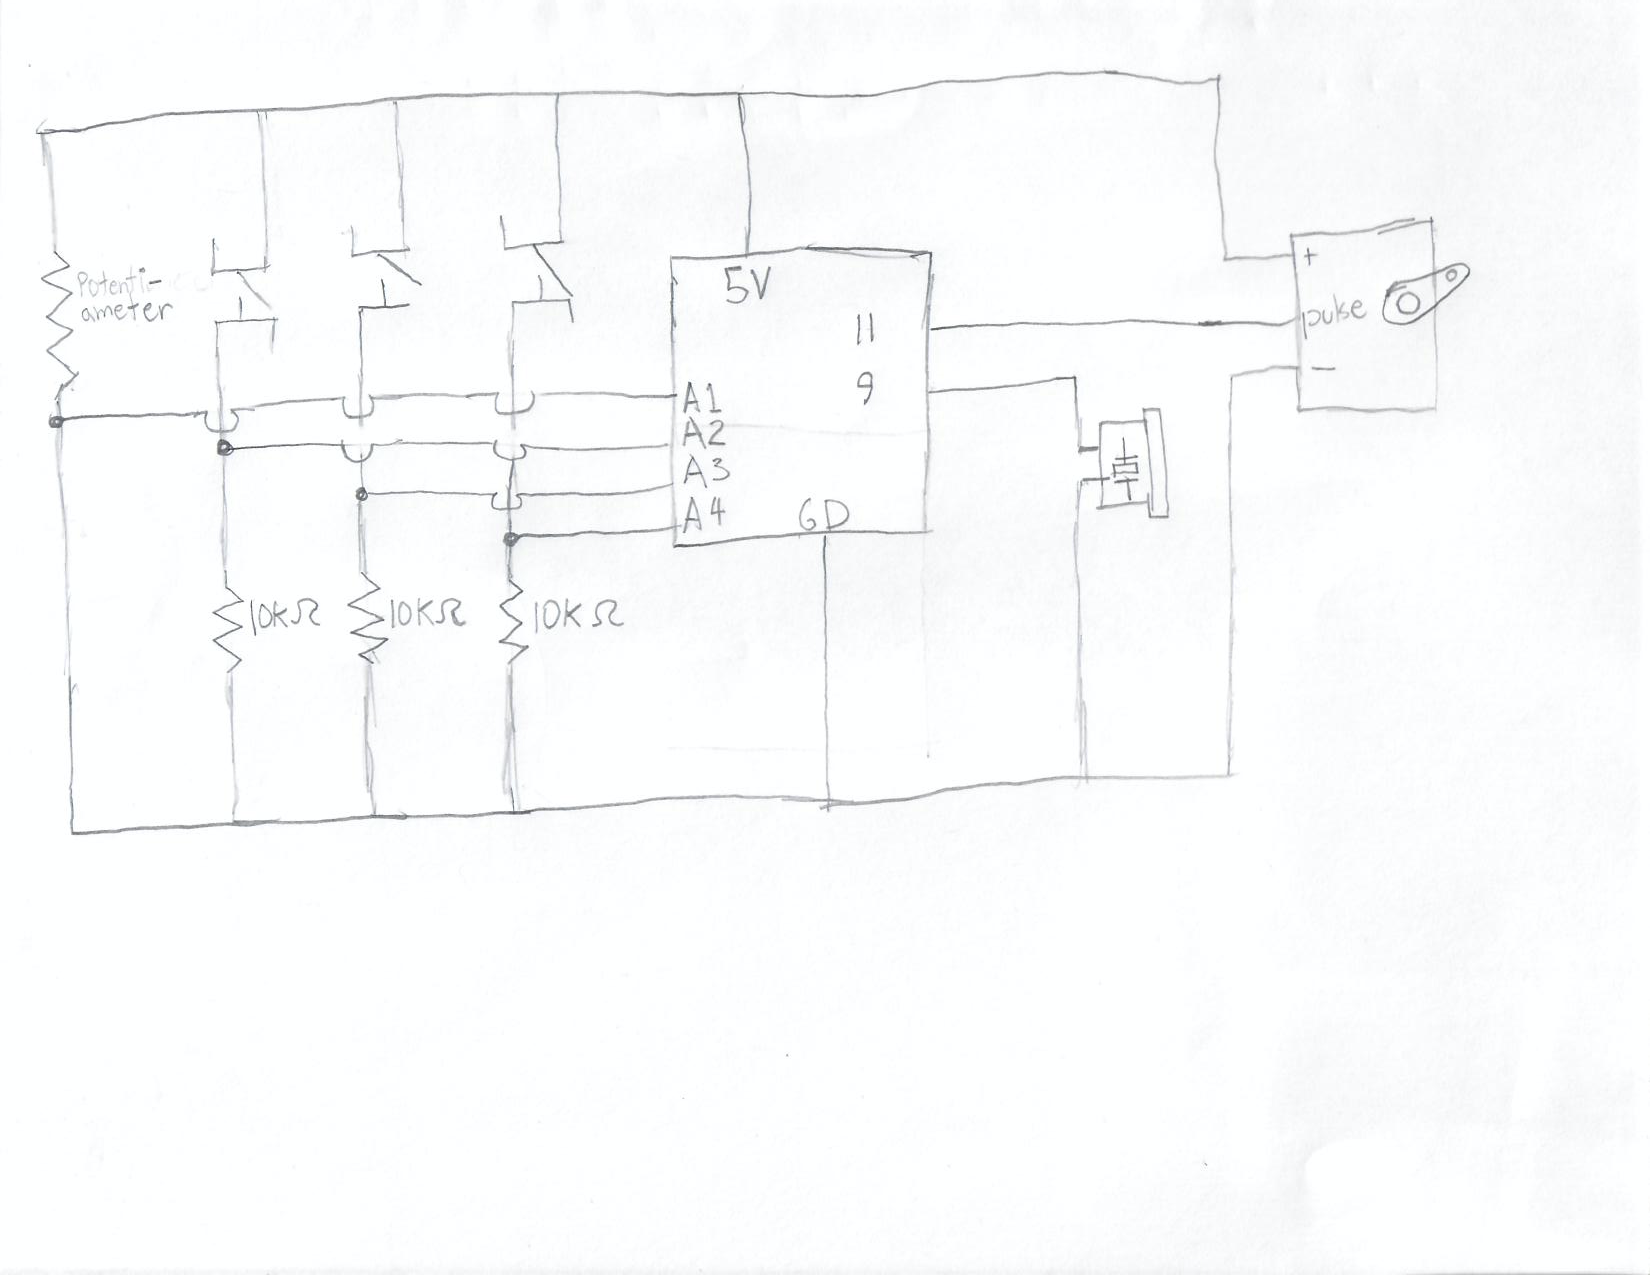 Potenti-
ameter
5V
11
9
A1
A2
A3
A4
GD
+
pulse
−
10kΩ
10KΩ
10K Ω